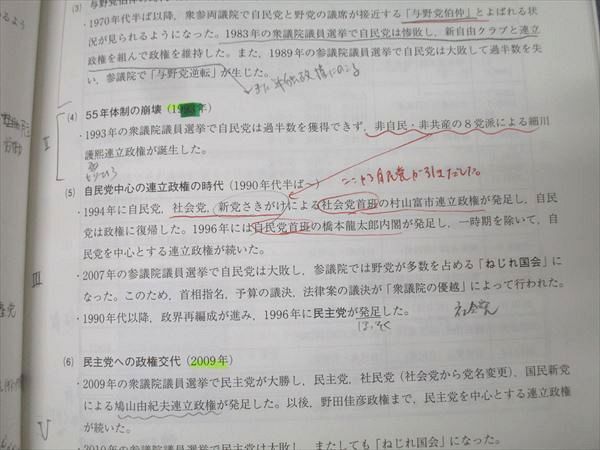 ・1970年代半ば以降，衆参両議院で自民党と野党の議席が接近する「与野党伯仲」とよばれる状
況が見られるようになった。1983年の衆議院議員選挙で自民党は惨敗し，新自由クラブと連立
政権を組んで政権を維持した。また，1989年の参議院議員選挙で自民党は大敗して過半数を失
い，参議院で「与野党逆転」が生じた。
(4) 55年体制の崩壊（1993年）
・1993年の衆議院議員選挙で自民党は過半数を獲得できず，非自民・非共産の8党派による細川
護熙連立政権が誕生した。
(5) 自民党中心の連立政権の時代（1990年代半ば〜）
・1994年に自民党，社会党，新党さきがけによる社会党首班の村山富市連立政権が発足し，自民
党は政権に復帰した。1996年には自民党首班の橋本龍太郎内閣が発足し，一時期を除いて，自
民党を中心とする連立政権が続いた。
・2007年の参議院議員選挙で自民党は大敗し，参議院では野党が多数を占める「ねじれ国会」に
なった。このため，首相指名，予算の議決，法律案の議決が「衆議院の優越」によって行われた。
・1990年代以降，政界再編成が進み，1996年に民主党が発足した。
ほっそく
社会党
(6) 民主党への政権交代（2009年）
・2009年の衆議院議員選挙で民主党が大勝し，民主党，社民党（社会党から党名変更），国民新党
による鳩山由紀夫連立政権が発足した。以後，野田佳彦政権まで，民主党を中心とする連立政権
が続いた。
・2010年の参議院議員選挙で民主党は大敗し，またしても「ねじれ国会」になった。